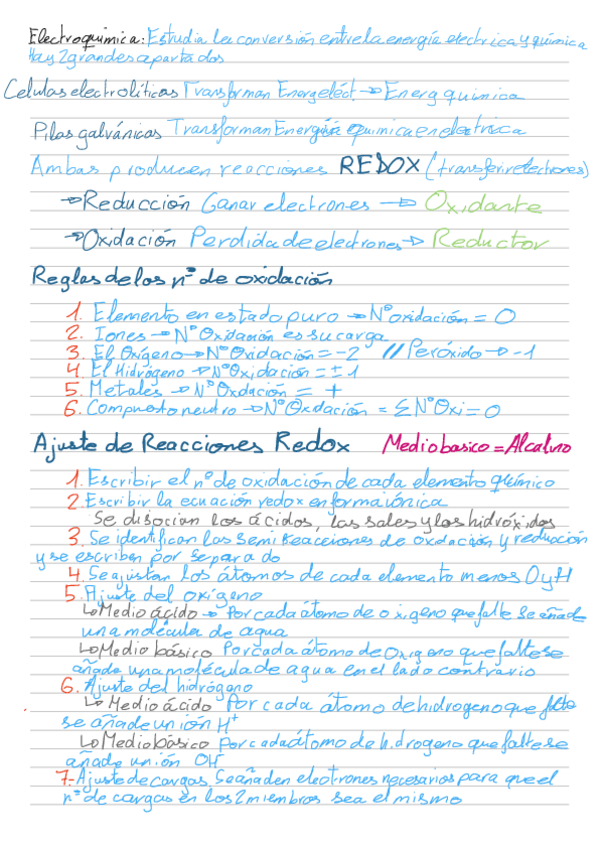 Electroquímica: Estudia la conversión entre la energía electrica y química
Hay 2 grandes apartados
Celulas electrolíticas Transforman Energ eléct. → Energ química
Pilas galvánicas Transforman Energía química en electrica
Ambas producen reacciones REDOX (transferir electrones)
→ Reducción Ganar electrones → Oxidante
→ Oxidación Perdida de electrones → Reductor
Reglas de los nº de oxidación
1. Elemento en estado puro → Nº oxidación = 0
2. Iones → Nº Oxidación es su carga
3. El Oxígeno → Nº Oxidación = -2 // Peróxido → -1
4. El Hidrógeno → Nº Oxidación = ±1
5. Metales → Nº Oxdación = +
6. Compuesto neutro → Nº Oxdación = Σ Nº Oxi = 0
Ajuste de Reacciones Redox Medio basico = Alcalino
1. Escribir el nº de oxidación de cada elemento químico
2. Escribir la ecuación redox en forma iónica
Se disocian los ácidos, las sales y los hidróxidos
3. Se identifican las semi Reacciones de oxdación y reducción
y se escriben por separado
4. Se ajustan los átomos de cada elemento menos O y H
5. Ajuste del oxígeno
↳ Medio ácido → Por cada átomo de oxigeno que falte se añade
una molécula de agua
↳ Medio básico Por cada átomo de Oxigeno que falte se
añade una molécula de agua en el lado contrario
6. Ajuste del hidrógeno
↳ Medio ácido Por cada átomo de hidrogeno que falte
se añade un ión H⁺
↳ Medio básico por cada átomo de hidrogeno que falte se
añade un ión OH⁻
7- Ajuste de cargas. Se añaden electrones necesarios para que el
nº de cargas en los 2 miembros sea el mismo